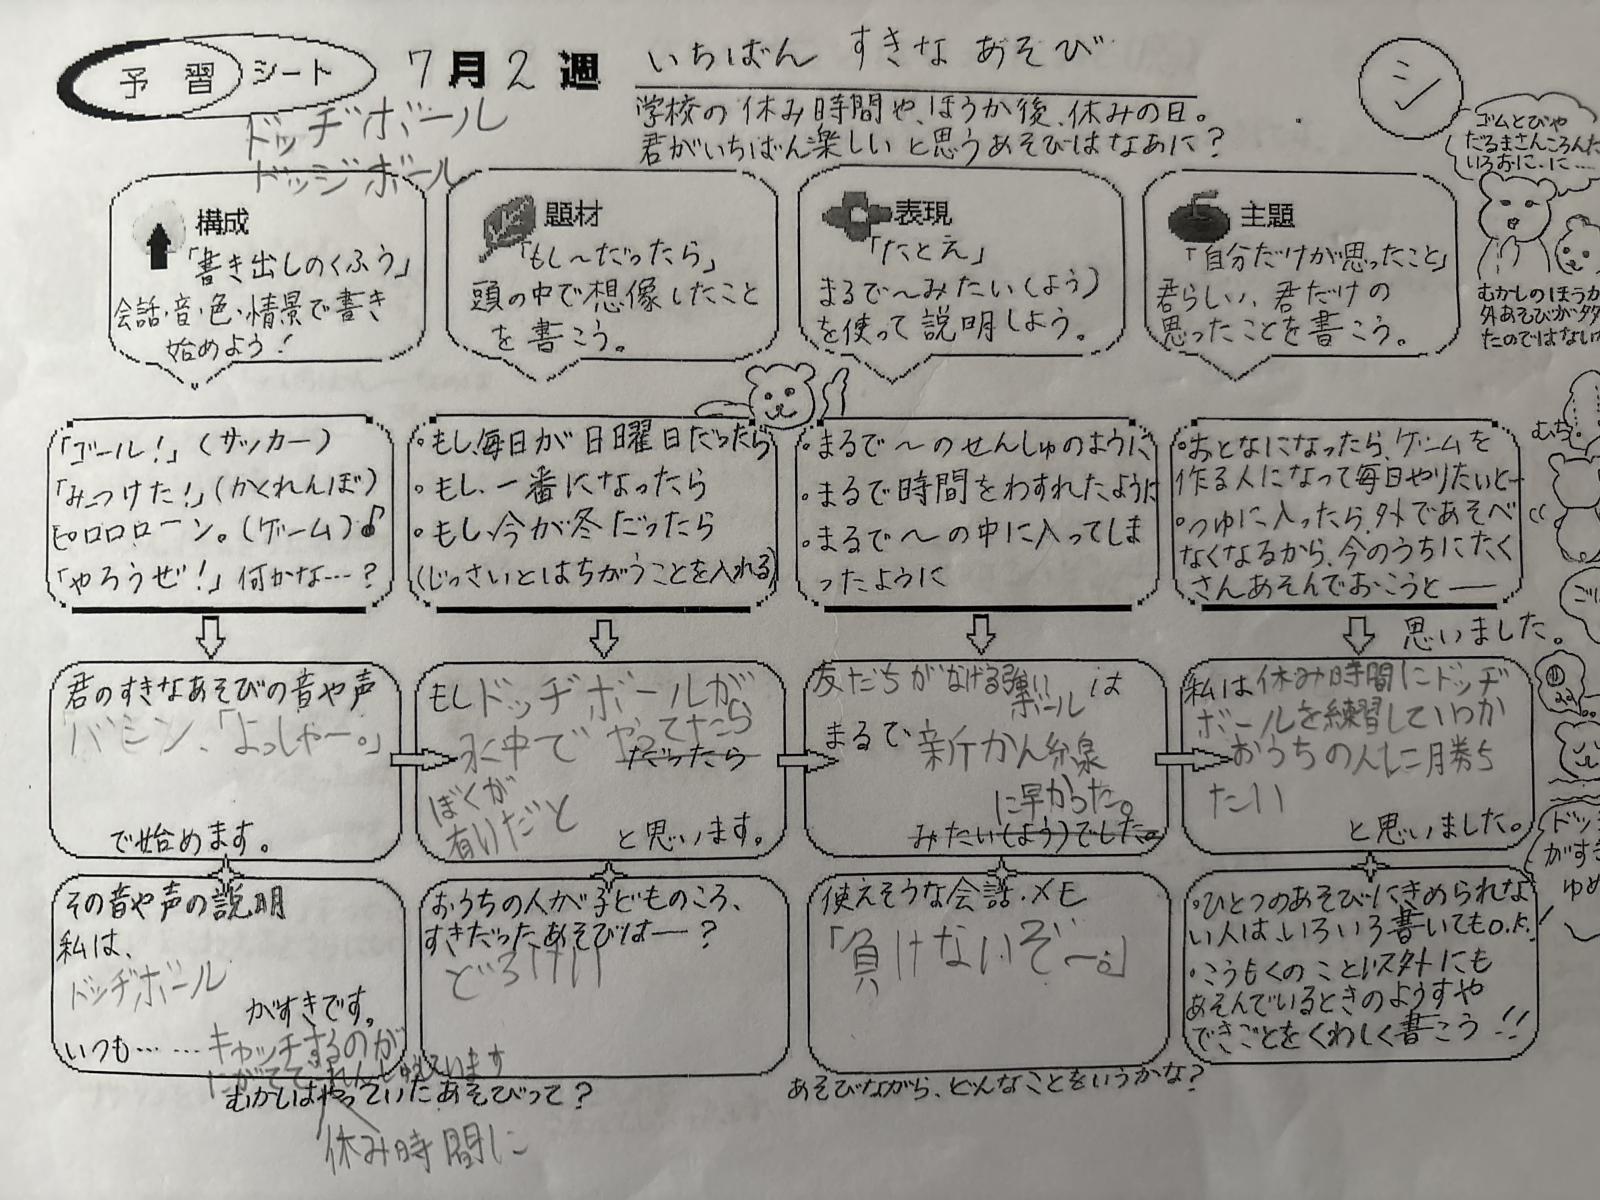 予習シート
7月2週
いちばん すきな あそび
シ
ドッヂボール
ドッジボール
学校の休み時間や、ほうか後、休みの日。
君がいちばん楽しいと思うあそびはなあに?
ゴムとびや
だるまさんころんだ
いろおに、に……
構成
「書き出しのくふう」
会話・音・色・情景で書き
始めよう!
題材
「もし～だったら」
頭の中で想像したこと
を書こう。
表現
「たとえ」
まるで～みたい(よう)
を使って説明しよう。
主題
「自分だけが思ったこと」
君らしい、君だけの
思ったことを書こう。
むかしのほうが
外あそびが
たのではないか
「ゴール!」(サッカー)
「みつけた!」(かくれんぼ)
ピロロローン。(ゲーム)♪
「やろうぜ!」何かな…?
・もし、毎日が日曜日だったら
・もし、一番になったら
・もし、今が冬だったら
(じっさいとはちがうことを入れる)
・まるで～のせんしゅのように
・まるで時間をわすれたように
・まるで～の中に入ってしま
ったように
・おとなになったら、ゲームを
作る人になって毎日やりたいと―
・つゆに入ったら、外であそべ
なくなるから、今のうちにたく
さんあそんでおこうと――
思いました。
君のすきなあそびの音や声
「バシン、「よっしゃー。」
で始めます。
もしドッヂボールが
水中でやってたら
だったら
ぼくが
有りだと
と思います。
友だちがなげる強い
ボールは
まるで、新かん線
に早かった。
みたい(よう)でした。
私は休み時間にドッヂ
ボールを練習していつか
おうちの人に勝ち
たい
と思いました。
その音や声の説明
私は、
ドッヂボール
がすきです。
いつも……キャッチするのが
にがてで、れんしゅうしています
おうちの人が子どものころ、
すきだったあそびは―?
どろけい
使えそうな会話・メモ
「負けないぞー。」
・ひとつのあそびにきめられな
い人は、いろいろ書いてもO.K.!
・こうもくのこといスタトにも
あそんでいるときのようすや
できごとをくわしく書こう!!
ドッ
がすき
ゆめ
むかしはやっていたあそびって?
あそびながら、どんなことをいうかな?
休み時間に